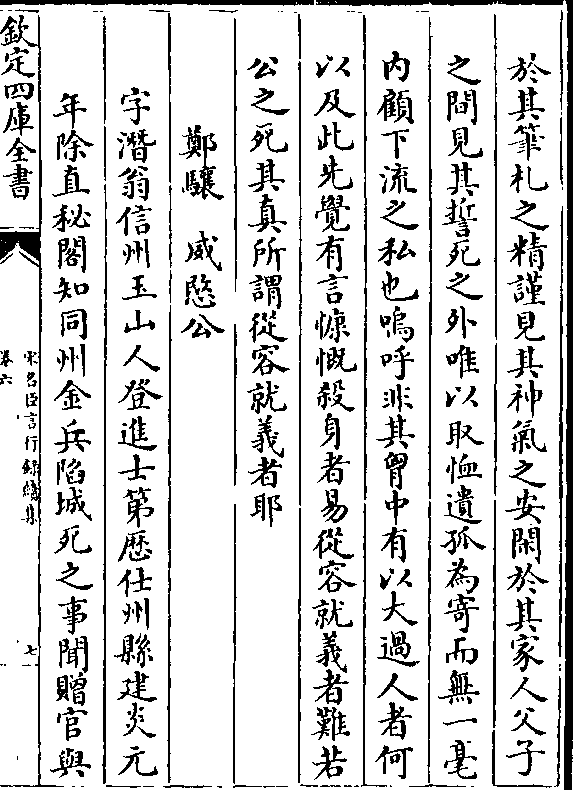 於其筆札之精謹見其神氣之安閑於其家人父子
之間見其誓死之外唯以取恤遺孤為寄而無一毫
内顧下流之私也嗚呼非其胷中有以大過人者何
以及此先覺有言慷慨殺身者易從容就義者難若
公之死其真所謂從容就義者耶
鄭驤　威愍公
字潛翁信州玉山人登進士第歴仕州縣建炎元
年除直秘閣知同州金兵陷城死之事聞贈官與
欽定四庫全書
宋名臣言行録續集
卷六
七